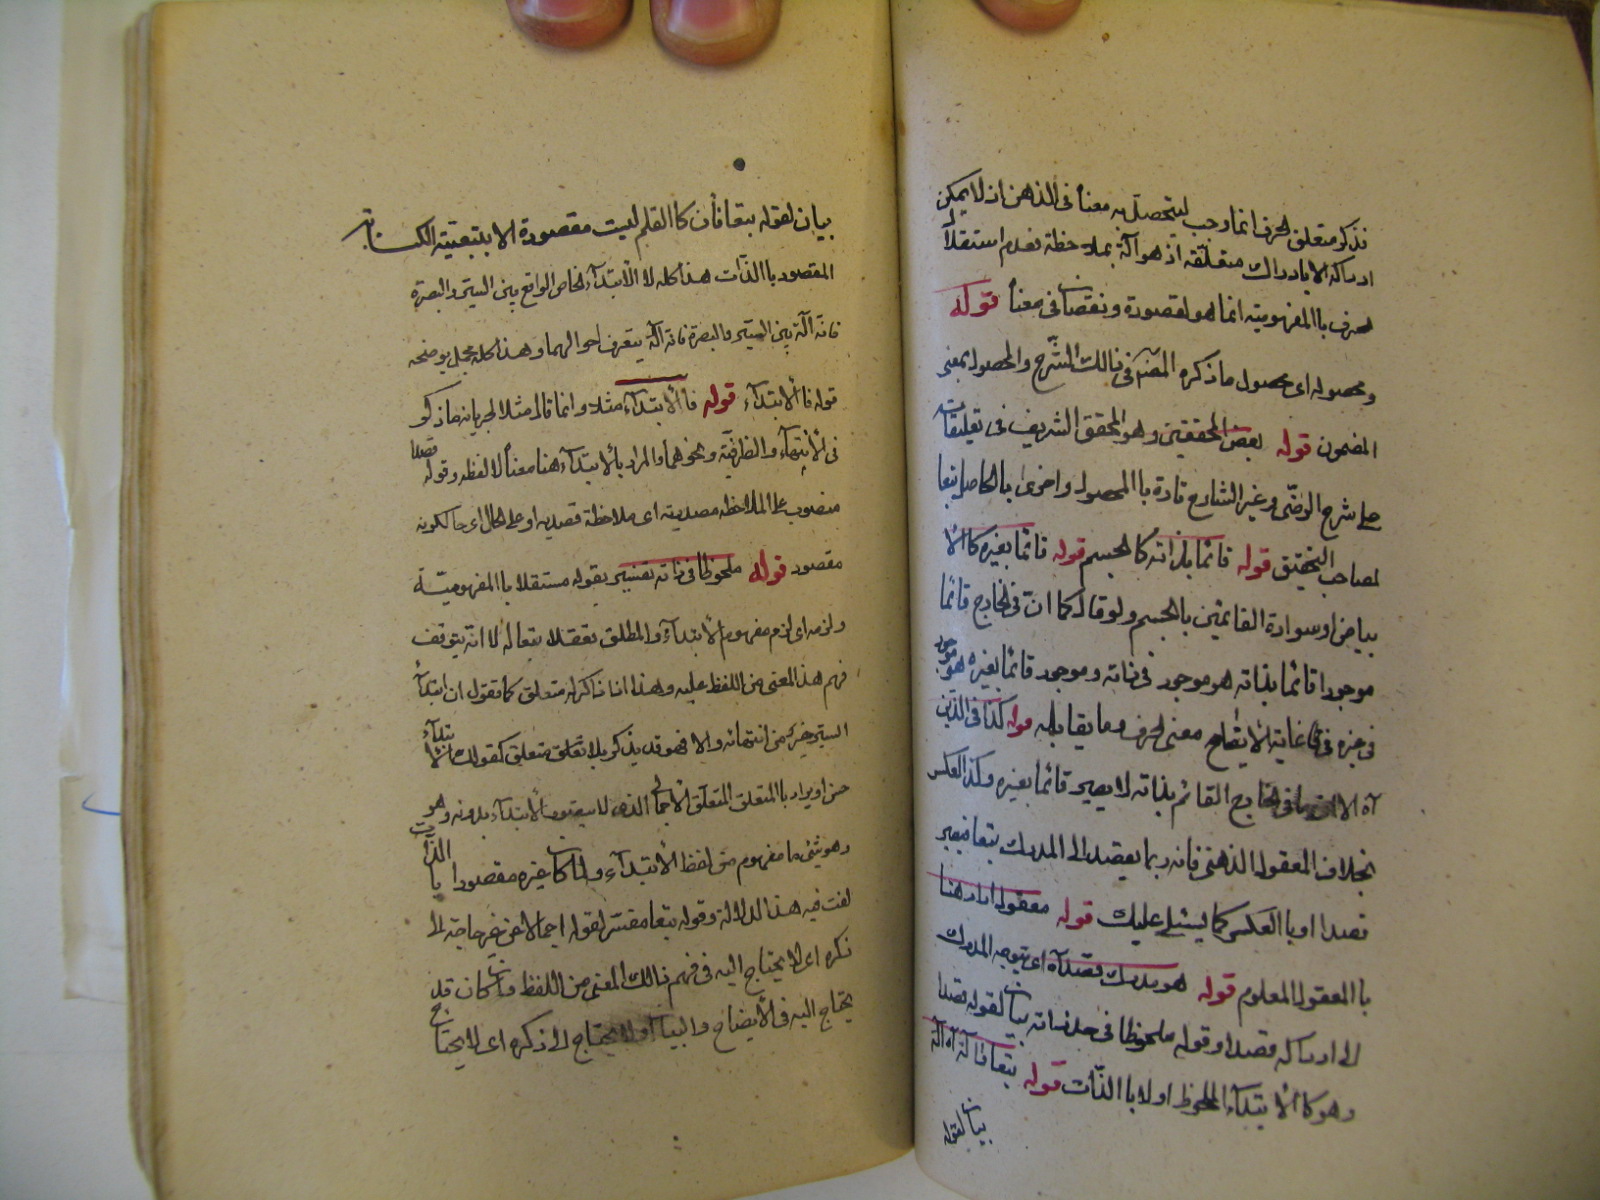 فذكر متعلق الحرف انما وجب ليتحصل به معناه في الذهن اذ لا يمكن
ادراكه الا بادراك متعلقه اذ هو آلة بملاحظة فعدم استقلال
الحرف باالمفهومية انما هو لقصور ونقصان في معناه قوله
ومحصوله اى محصول ما ذكره المصنف في ذالك الشرح والمحصول بمعنى
المضمون قوله بعض المحققين وهو المحقق الشريف في تعليقات
على شرح الرضى وغير الشارح تارة باالمحصول واخرى باالحاصل تبعا
لصاحب التحقيق قوله قائما بذاته كالجسم قوله قائما بغيره كاالا
بياض وسوادة القائمين باالجسم ولو قال كما ان في الخارج قائما
موجودا قائما بذاته هو موجود في ذاته وموجود قائما بغيره هو موجود
في غيره في غاية الايضاح معنى الحرف وما يقابله قوله كذا في الذهن
آه الا ان ما في الخارج القائم بذاته لا يصير قائما بغيره وكذا العكس
بخلاف المعقول الذهنى فانه ربما يقصد الى المدرك تبعا فيصير
قصدا او باالعكس كما يستلى عليك قوله معقول اراد هنا
باالمعقول المعلوم قوله هو مدرك قصدا آه اى يتوجه المدرك
الى ادراكه قصدا وقوله ملحوظا في حد ذاته بيان لقوله قصدا
وهو كاالابتداء الملحوظ اولا باالذات قوله تبعا آلة آه
بيان لقوله
بيان لقوله تبعا فان كاالقلم ليست مقصودة الا بتبعية الكتابة
المقصود باالذات هذا كله لا الابتداء الخاص الواقع بين السير والبصرة
فانه آلة بين السير والبصرة فانه آلة يتعرف احوالهما وهذا كله مجمل يوضحه
قوله فاالابتداء قوله فاالابتداء مثلا وانما قال مثلا لجريانه ما ذكر
في الانتهاء والظرفية ونحوهما والمراد باالابتداء هنا معناه لا لفظه وقوله قصدا
منصوب على الملاحظة مصدرية اى ملاحظة قصدية او على الحال اى حال كونه
مقصود قوله ملحوظا في ذاته تفسير بقوله مستقلا باالمفهومية
ولزمه اى لزم مفهوم الابتداء والمطلق تعقلا بتعاله لا انه يتوقف
فهم هذا المعنى من اللفظ عليه وهذا اذا ذاكر له متعلق كما تقول ان ابتداء
السير خير من انتهائه والا فهو قد يذكر بلا تعلق متعلق كقولك الابتداء
حسن او يراد باالمتعلق المتعلق الاجمالى الذى لا يتصور الابتداء بدونه وهو
وهو شئ ما مفهوم من لفظ الابتداء ولما كان غيره مقصودا باالذات
لفت فيه هذا الدلالة وقوله تبعا مفسر لقوله اجمالا من غير حاجة الى
ذكره اى لا يحتاج اليه في فهم ذالك المعنى من اللفظ وان كان قد
يحتاج اليه في الايضاح والبيان ولا يحتاج الى ذكره اى لا يحتاج